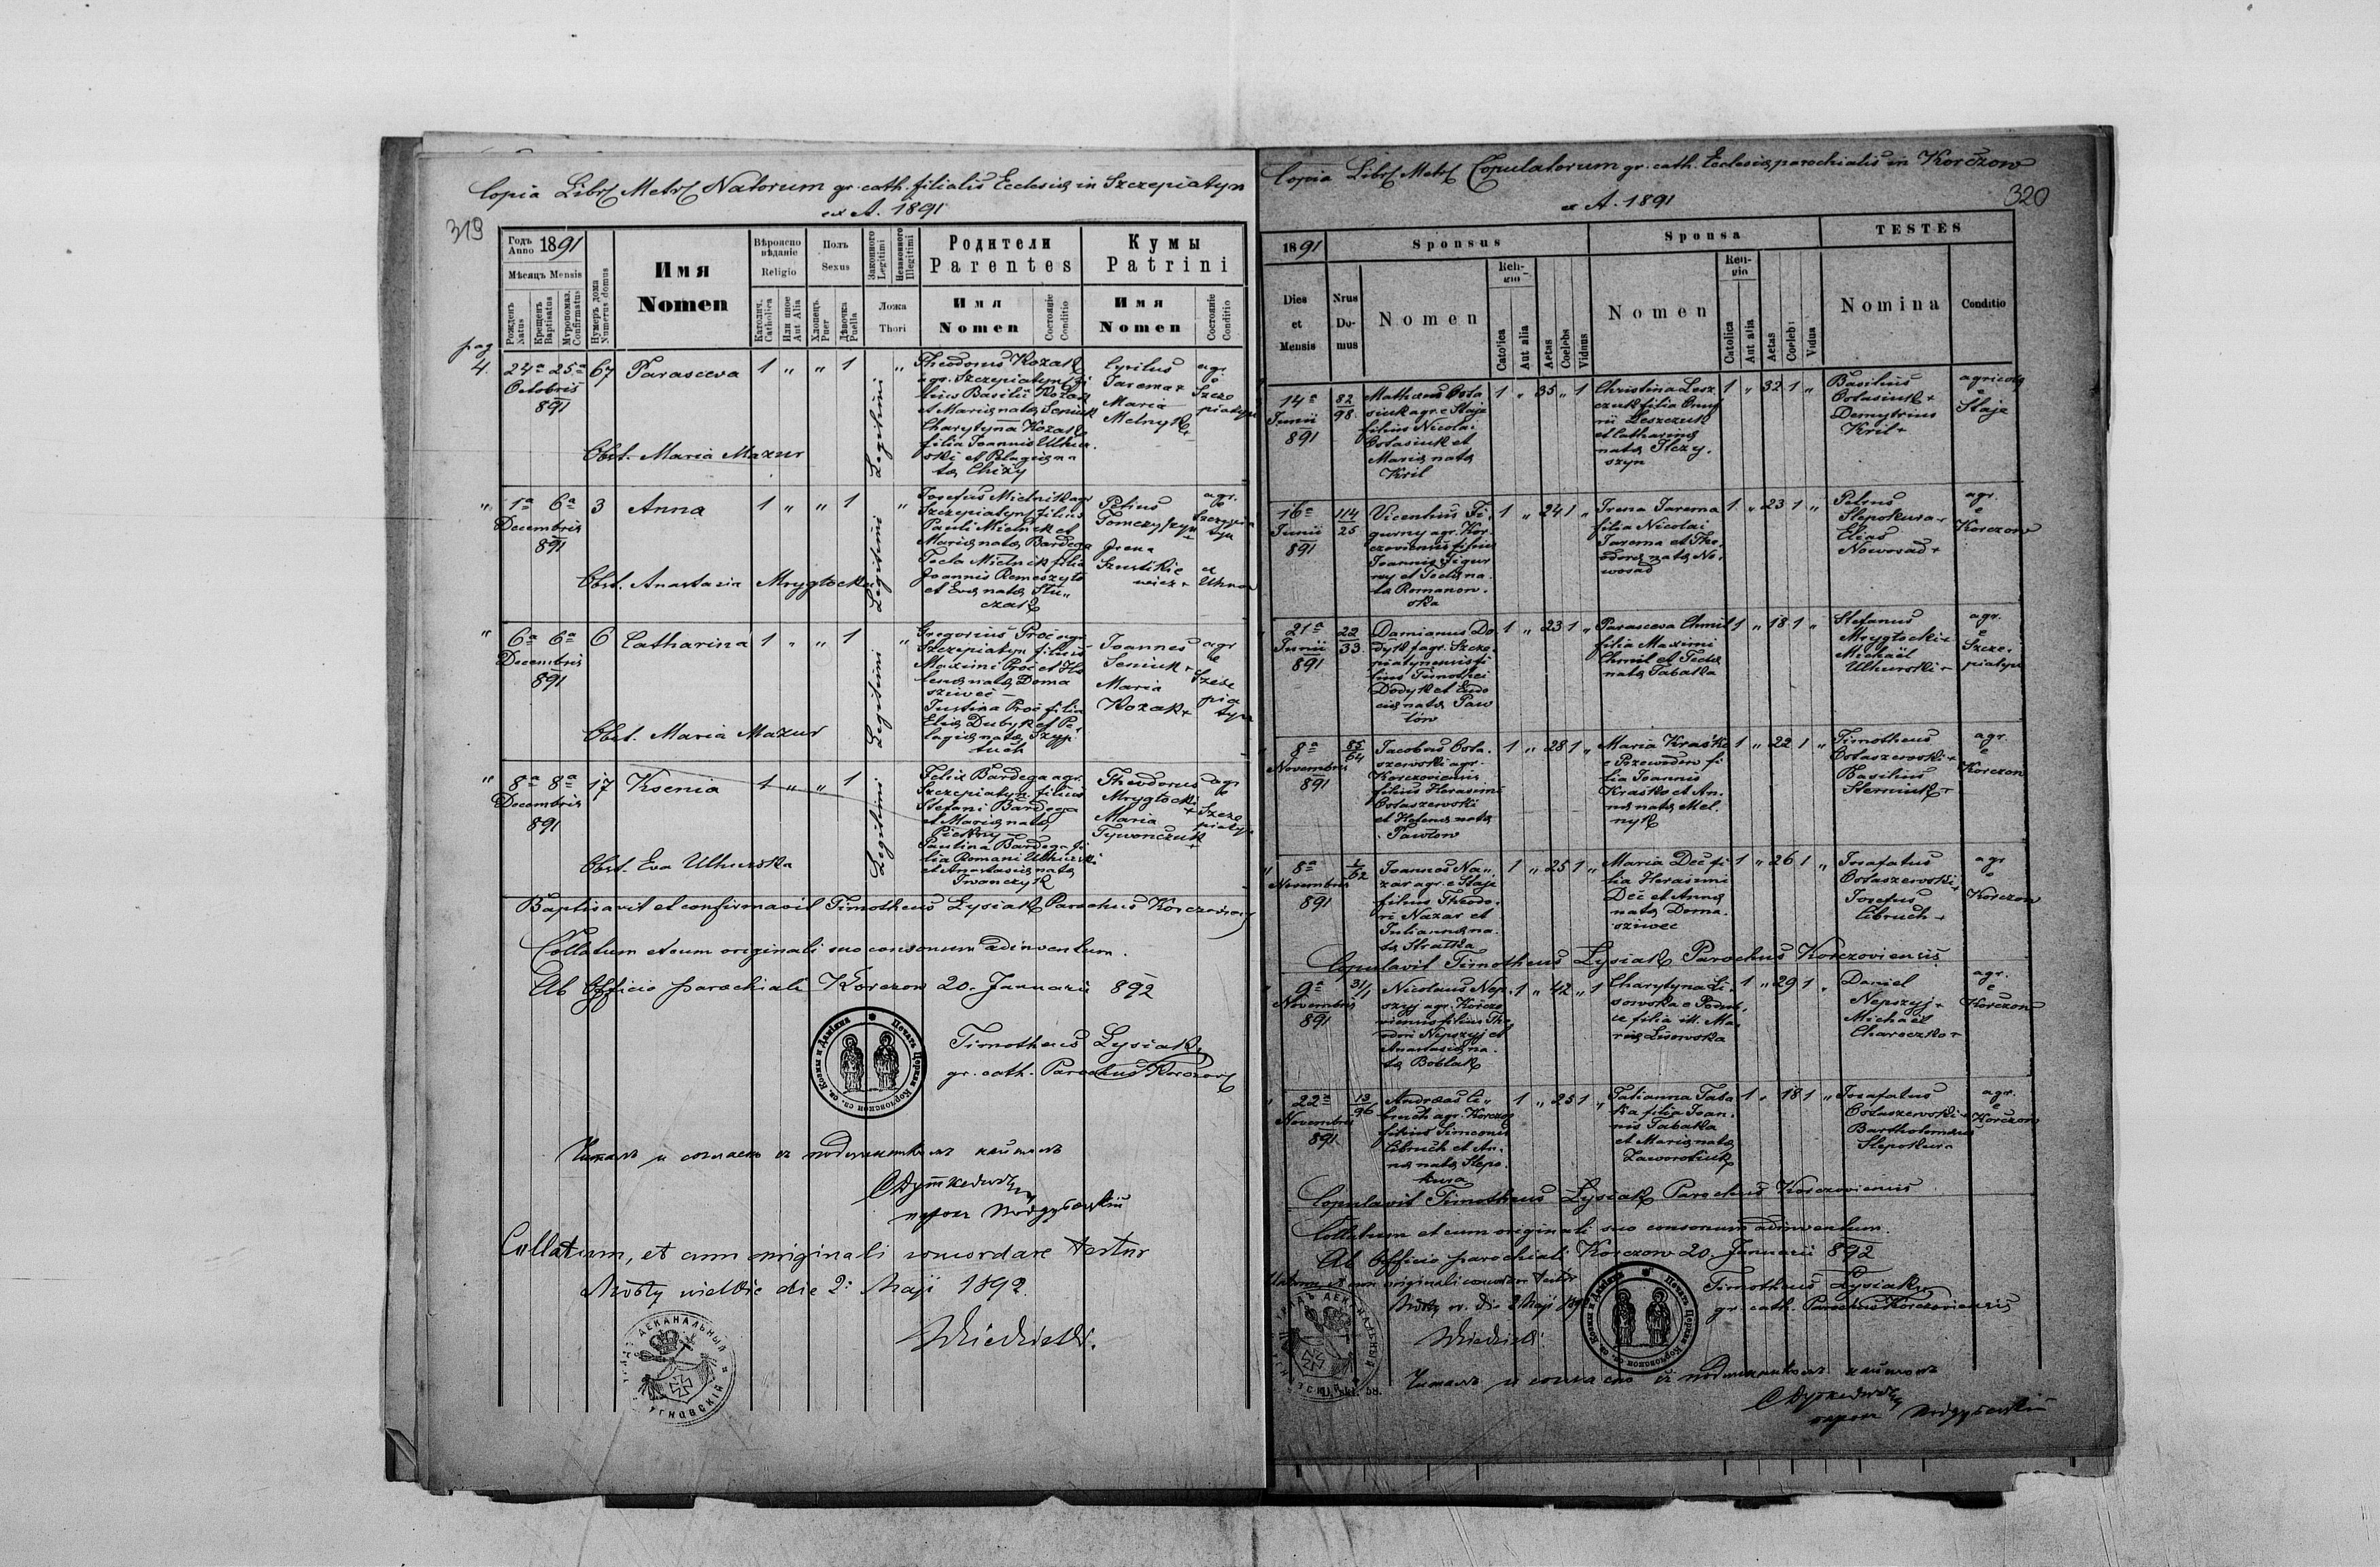 Copia Libr. Metr. Natorum gr. cath. filialis Ecclesiæ in Szczepiatyn
ex A. 1891
319
Годъ Anno 1891
Мѣсяцъ Mensis
Рожденъ Natus
Крещенъ Baptisatus
Мѵропомаз. Confirmatus
Нумеръ дома Numerus domus
Имя
Nomen
Вѣроисповѣданіе
Religio
Католич. Catholica
Или иное Aut Alia
Полъ
Sexus
Хлопецъ Puer
Дѣвочка Puella
Законного Legitimi
Незаконного Illegitimi
Ложа
Thori
Родители
Parentes
Имя
Nomen
Состояніе
Conditio
Кумы
Patrini
Имя
Nomen
Состояніе
Conditio
pag
4.
24a 25a
Octobris
891
67
Parasceva
1 " " 1
Legitimi
"
Theodorus Kozak
agr. Szczepiatyn fi
lius Basilii Kozak
et Mariæ natæ Seniuk
Charytyna Kozak
filia Joannis Uhnow
ski et Pelagiæ na
tæ Chizy
Cyrilus
Jarema +
Maria
Melnyk
+
agr.
e
Szcze
piatyn
Obst. Maria Mazur
" 1a 6a
Decembris
891
3
Anna
1 " " 1
Legitimi
"
Josefus Mielnik agr
Szczepiatyn filius
Pauli Mielnik et
Mariæ natæ Bardega
Tecla Mielnik filia
Joannis Romaszyto
et Evæ natæ
czak
Petrus
Tomczyszyn
+
Irena
wicz +
agr.
e
Szczepia
tyn
ex
Uhnow
Obst. Anastasia Mrygłocka
" 6a 6a
Decembris
891
6
Catharina
1 " " 1
Legitimi
"
Gregorius Proć agr
Szczepiatyn filius
Maximi Proć et He
lenæ natæ Doma
sziweć
Justina Proć filia
Eliæ Dubyk et Pe
lagiæ natæ Szyp
tuch
Joannes
Seniuk +
Maria
Kozak +
agr
e
Szcze
pia
tyn
Obst. Maria Mazur
" 8a 8a
Decembris
891
17
Ksenia
1 " " 1
Legitimi
Felix Bardega agr.
Szczepiatyn filius
Stefani Bardega
et Mariæ natæ
Paulina Bardega fi
lia Romani Uhnowski
et Anastasiæ natæ
Iwonczyk
Theodorus
Mrygłocki
+
Maria
Tywonczuk
+
agr
e
Szcze
piatyn
Obst. Eva Uhnowska
Baptisavit et confirmavit Timotheus Łysiak Parochus Korczoviensis
Collatum et cum originali suo consonum adinventum.
Ab Officio parochiali Korczow 20. Januarii 892
Timotheus Łysiak
gr. cath. Parochus Korczov
Печать Церкви Корчовской св. Козмы и Даміяна
Читалъ и согласно съ подлинникомъ нашолъ
Collatum, et cum originali concordare testor
Mosty wielkie die 2. Maji 1892
ДЕКАНАЛЬНЫЙ
УГНОВСКІЙ
Copia Libr. Metr. Copulatorum gr. cath. Ecclesiæ parochialis in Korczow
ex A. 1891
320
1891
Dies
et
Mensis
Nrus
Do-
mus
Sponsus
Nomen
Reli-
gio
Catolica
Aut alia
Aetas
Coelebs
Viduus
Sponsa
Nomen
Reli-
gio
Catolica
Aut alia
Aetas
Coelebs
Vidua
TESTES
Nomina
Conditio
14a
Junii
891
82
98.
Matheus Osta
siuk agr. e Staje
filius Nicolai
Ostasiuk et
Mariæ natæ
Kril
1 " 35 " 1
Christina Lesz
czuk filia Onuf
rii Leszczuk
et Catharinæ
natæ Ilczy.
szyn
1 " 32 1 "
Basilius
Ostasiuk +
Demytrius
Kril +
agricolæ
e
Staje
16a
Junii
891
114
25
Vicentius Fi
gurny agr. Kor
czoviensis filius
Joannis Figur
ny et Teclæ na.
tæ Romanow.
ska
1 " 24 1 "
Irena Jarema
filia Nicolai
Jarema et The
odoræ natæ No.
wosad
1 " 23 1 "
Petrus
Slepokura +
Elias
Nowosad +
agr.
e
Korczow
" 21a
Junii
891
22
33.
Damianus Do
dyk agr. Szcze
piatynensis fi
lius Timothei
Dodyk et Eudo
ciæ natæ Paw
łów
1 " 23 1 "
Parasceva Chmil
filia Maximi
Chmil et Teclæ
natæ Tabaka
1 " 18 1 "
Stefanus
Mrygłocki +
Michaël
Uhnowski +
agr.
e
Szcze.
piatyn
" 8a
Novembris
891
85
64
Jacobus Osta.
szewski agr.
Korczoviensis
filius Herasimi
Ostaszewski
et Helenæ natæ
Pawłow
1 " 28 1 "
Maria Kraśko
e Przewodow fi
lia Joannis
Kraśko et An.
næ natæ Mel.
nyk
1 " 22 1 "
Timotheus
Ostaszewski +
Basilius
Sterniuk +
agr.
e
Korczow
" 8a
Novembris
891
1
62
Joannes Na.
zar agr. e Staje
filius Theodo.
ri Nazar et
Juliannæ na.
tæ Stratka
1 " 25 1 "
Maria Deć fi
lia Herasimi
Deć et Annæ
natæ Doma.
sziwec
1 " 26 1 "
Josafatus
Ostaszewski +
Josefus
Cibruch +
agr
e
Korczow
Copulavit Timotheus Łysiak Parochus Korczoviensis
" 9a
Novembris
891
31/1
Nicolaus Nep.
szyj agr. Korczo
viensis filius The
odori Nepszyj et
Anastasiæ na.
tæ Boblak
1 " 42 " 1
Charytyna Li.
sowska e
filia ill. Ma.
riæ Lisowska
1 " 29 1 "
Daniel
Nepszyj +
Michaël
Chareczko +
agr.
e
Korczow
" 22a
Novembris
891
13
96
Andreas Ci.
bruch agr. Korczow
filius Simeonis
Cibruch et An.
næ natæ Slepo.
kura
1 " 25 1 "
Tatianna Taba
ka filia Joan.
nis Tabaka
et Mariæ natæ
Zaworotiuk
1 " 18 1 "
Josafatus
Ostaszewski +
Bartholomæus
Slepokura
agr.
e
Korczow
Copulavit Timotheus Łysiak Parochus Korczoviensis
Collatum et cum originali suo consonum adinventum.
Ab Officio parochiali Korczow 20. Januarii 892
Timotheus Łysiak
gr. cath. Parochus Korczoviensis
Печать Церкви Корчовской св. Козмы и Даміяна
cum originali concordare testor
Mosty w. die 2 Maji 1892
ДЕКАНАЛЬНЫЙ
Читалъ и согласно съ подлинникомъ нашолъ